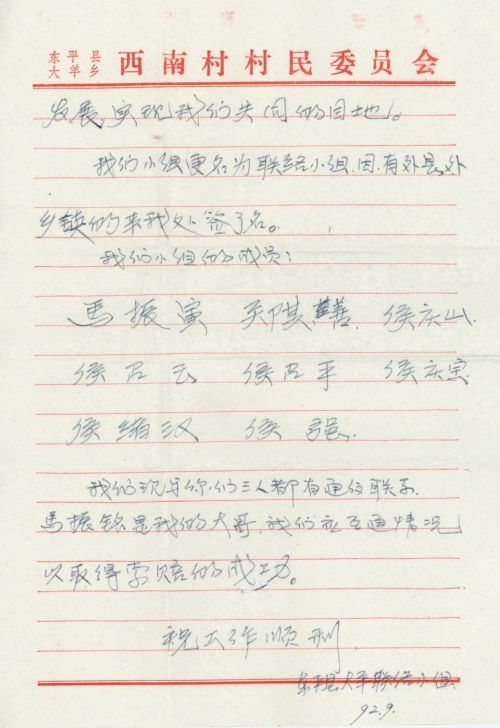 东平县
大羊乡
西南村村民委员会
发展,实现我们共同的目地。
我们小组更名为联络小组,因有外县,外
乡镇的来我处签了名。
我们小组的成员:
馬振演 侯庆山.
侯占云 侯占平 侯庆宝
侯绪汉 侯
我们现与你们三人都有通信联系.
馬振铭是我的大哥,我们应互通情况
以取得索赔的成功。
祝工作顺利
东平县大羊联络小组.
92.9.